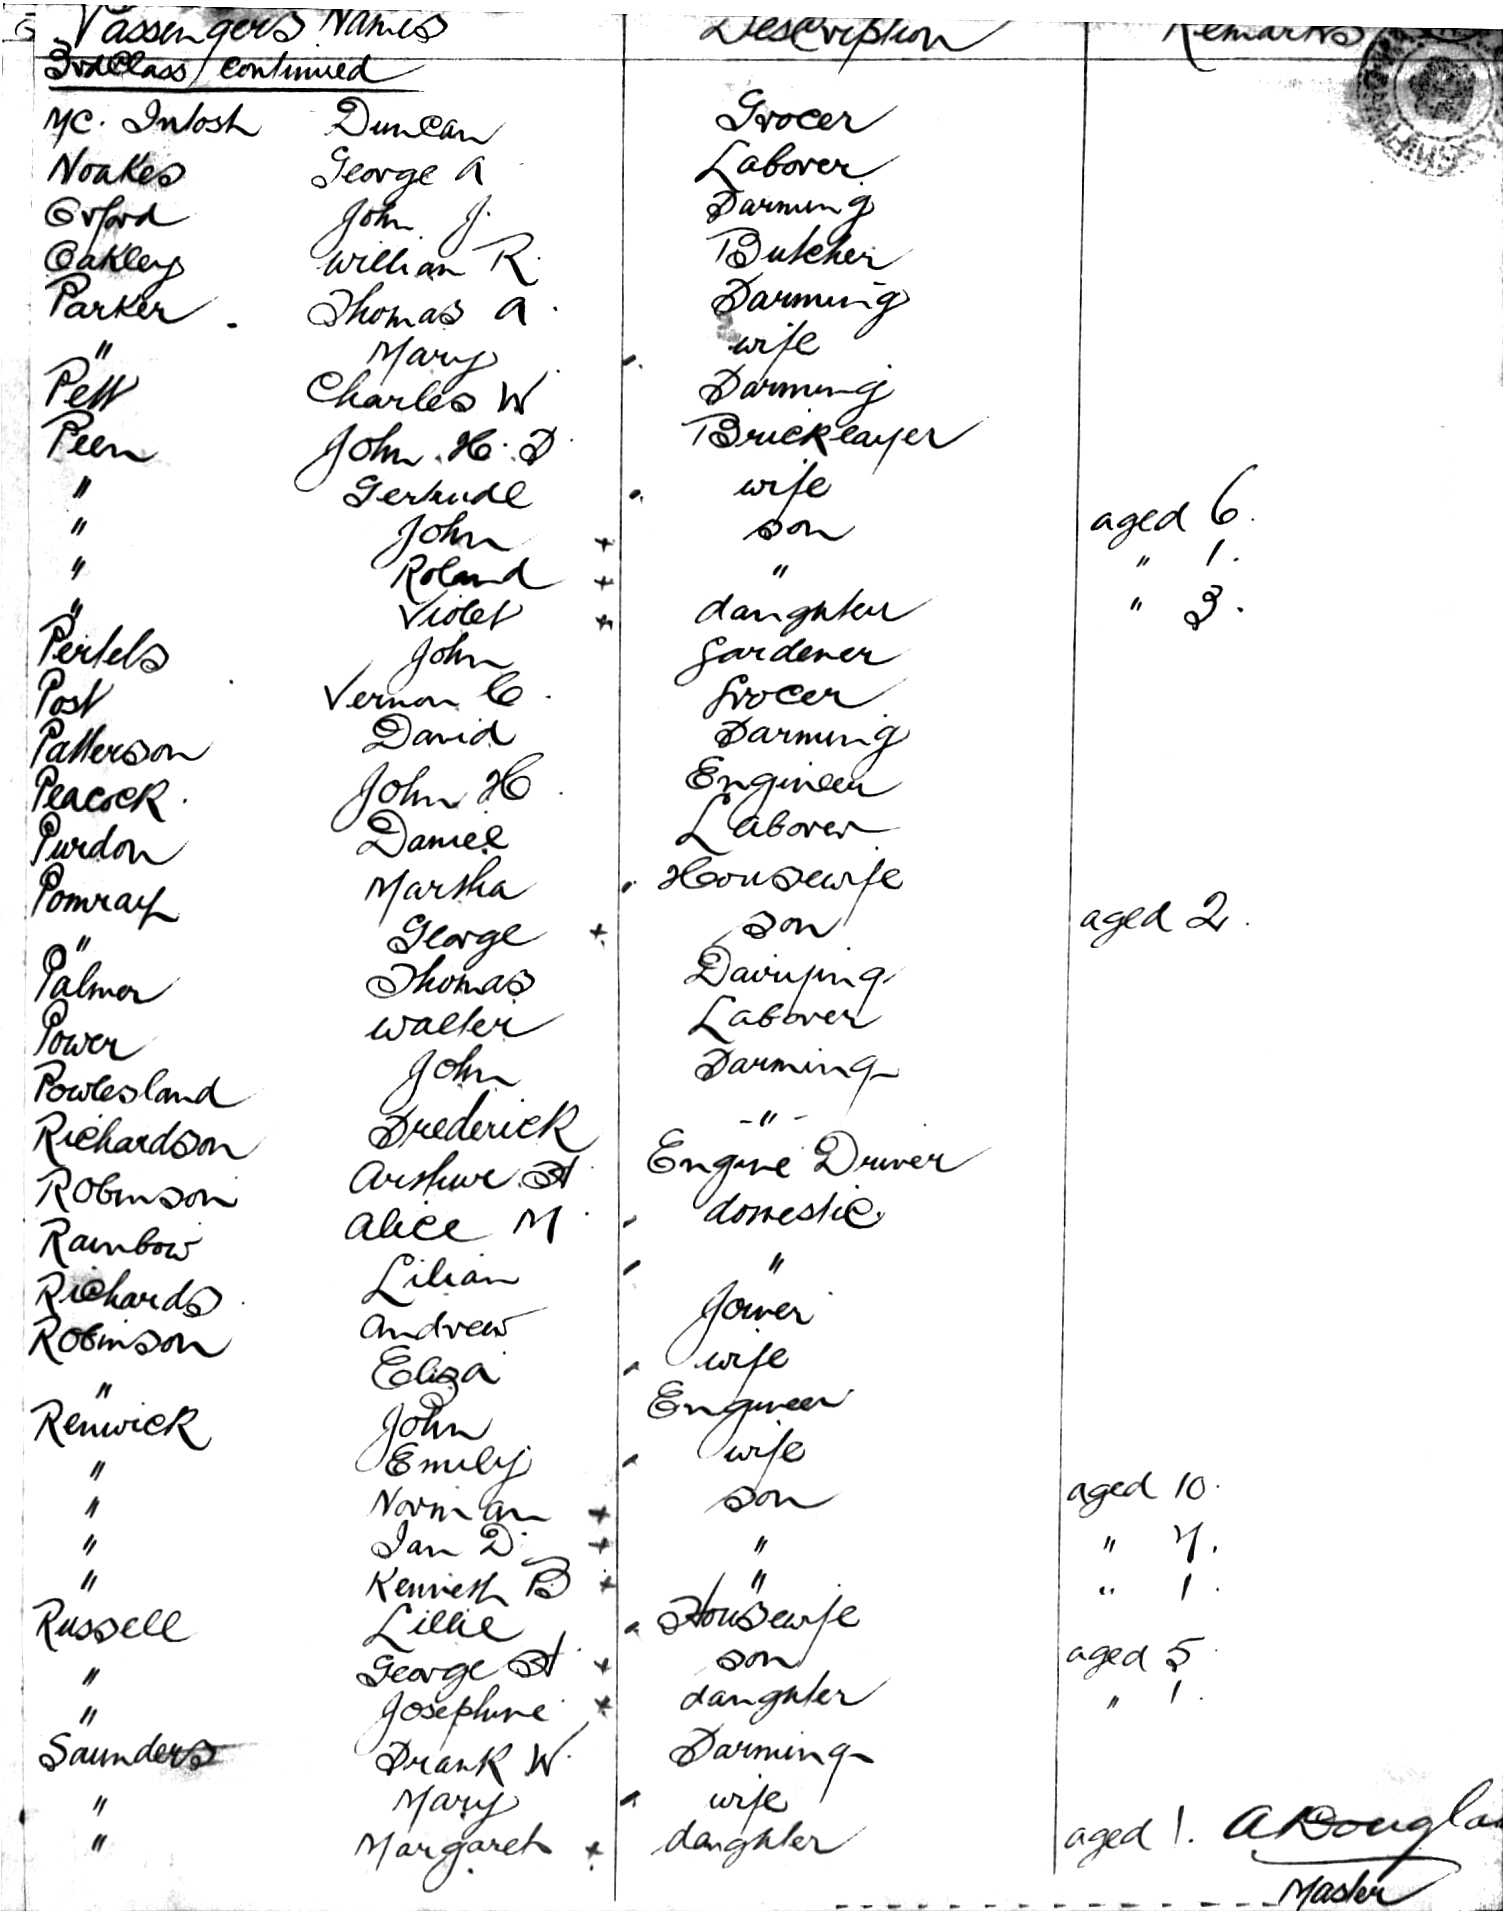 Passengers Names Description Remarks
3rd Class continued
Mc. Intosh Duncan Grocer
Noakes George A Laborer
Orford John J. Farming
Oakley William R. Butcher
Parker. Thomas A. Farming
" Mary wife
Pett Charles W Farming
Peen John. H. F. Bricklayer
" Gertrude wife
" John + son aged 6.
" Roland + " " 1.
" Violet + daughter " 3.
Pertels John Gardener
Post Vernon C. Grocer
Patterson David Farming
Peacock. John H. Engineer
Purdon Daniel Laborer
Pomray Martha Housewife
" George + son aged 2.
Palmer Thomas Dairying
Power Walter Laborer
Powlesland John Farming
Richardson Frederick - " -
Robinson Arthur St. Engine Driver
Rainbow Alice M. domestic
Richards Lilian "
Robinson Andrew Joiner
" Eliza wife
Renwick John Engineer
" Emily wife
" Norman + son aged 10.
" Ian D. + " " 7.
" Kenneth B + " " 1.
Russell Lillie Housewife
" George St. + son aged 5.
" Josephine + daughter " 1.
Saunders Frank W. Farming
" Mary wife
" Margaret + daughter aged 1. A Dougla
Master